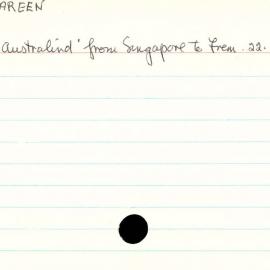 AREEN
Australind' from Singapore to Frem. 22.